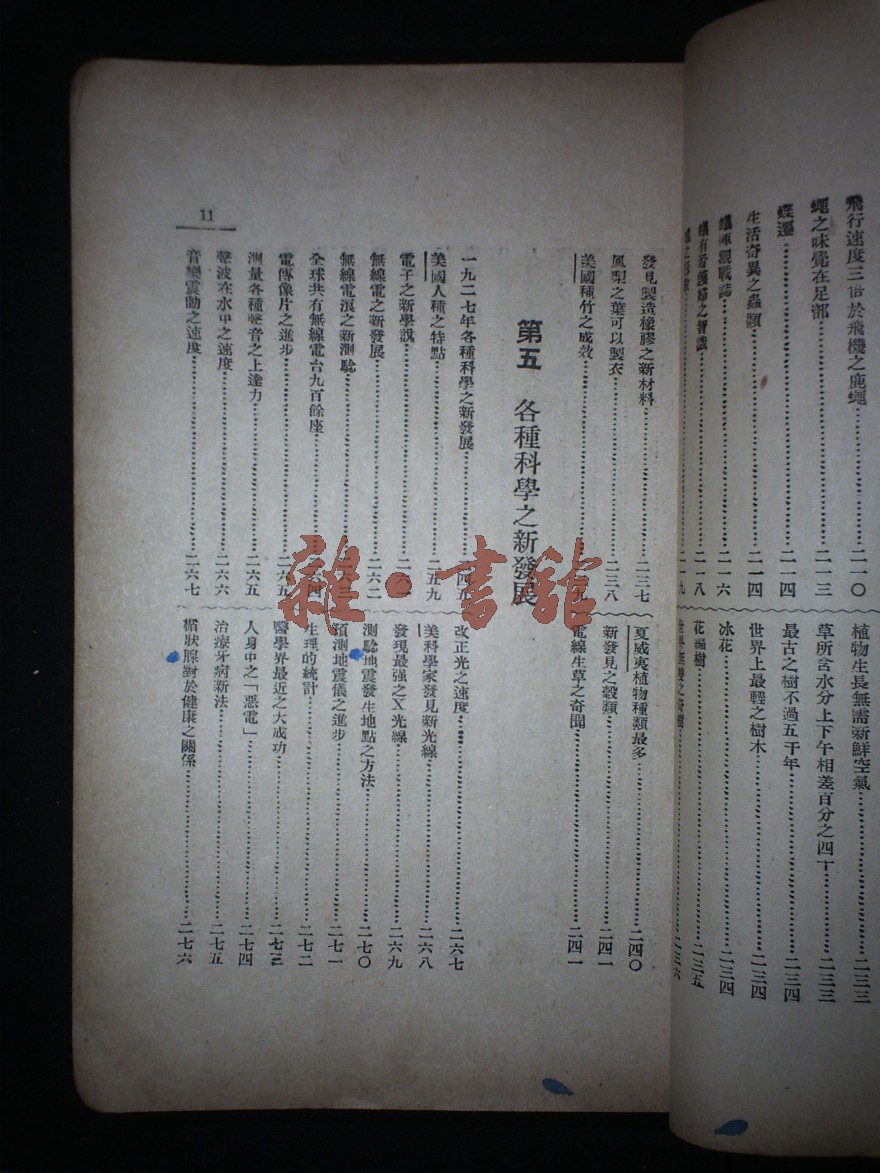 飛行速度三倍於飛機之鹿蠅……二一〇
蠅之味覺在足部……二一三
蝶遷……二一四
生活奇異之蟲類……二一四
蟻陣觀戰誌……二一六
蟻有看護婦之智識……二一八
植物生長無需新鮮空氣……二三三
草所含水分上下午相差百分之四十……二三三
最古之樹不過五千年……二三四
世界上最輕之樹木……二三四
冰花……二三四
花福樹……二三五
二三六
11
發見製造橡膠之新材料……二三七
鳳梨之葉可以製衣……二三八
美國種竹之成效
夏威夷植物種類最多……二四〇
新發見之穀類……二四一
電線生草之奇聞……二四一
第五 各種科學之新發展
一九二七年各種科學之新發展……二四五
美國人種之特點……二五九
電子之新學說
無線電之新發展……二六二
無線電浪之新測驗……二六三
全球共有無線電台九百餘座……二六四
電傳像片之進步……二六五
測量各種聲音之上達力……二六五
聲波在水中之速度……二六六
音樂震動之速度……二六七
改正光之速度……二六七
美科學家發見新光線……二六八
發現最强之X光線……二六九
測驗地震發生地點之方法……二七〇
預測地震儀之進步……二七一
生理的統計……二七二
醫學界最近之大成功……二七三
人身中之「惡電」……二七四
治療牙病新法……二七五
楯狀腺對於健康之關係……二七六
雜·書館